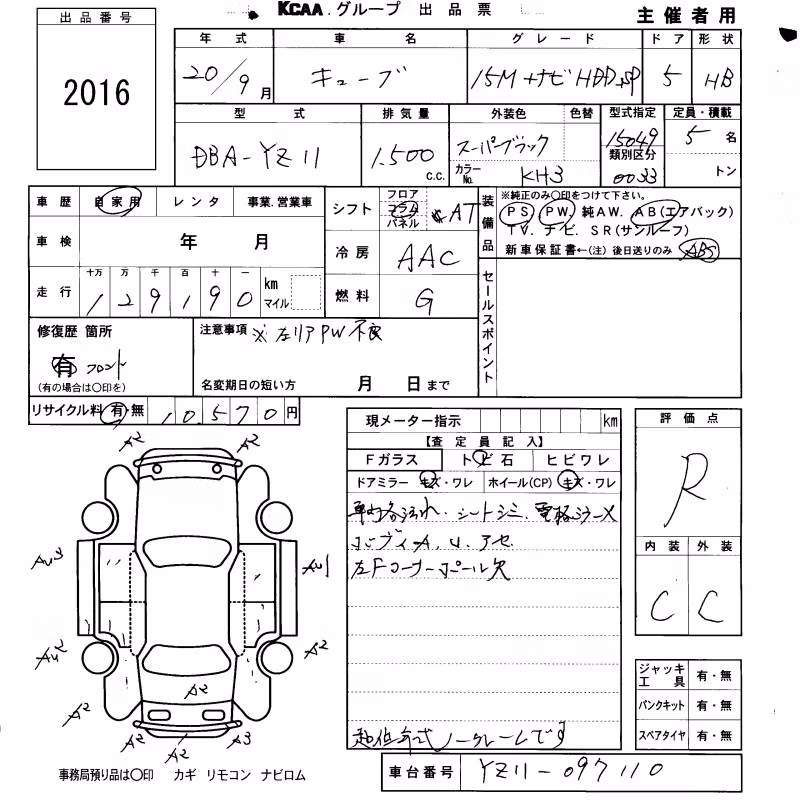 KCAA.グループ 出品票
主催者用
出品番号
2016
年式 車名 グレード ドア 形状
20/9月 キューブ 15M+ナビHDD SP 5 HB
型式 排気量 外装色 色替 型式指定 定員・積載
DBA-YZ11 1.500 c.c. スーパーブラック 15049 5名
カラーNo. KH3 類別区分 0033 トン
車歴 自家用 レンタ 事業.営業車
シフト フロア コラム パネル AT
装備品 ※純正のみ○印をつけて下さい。
PS PW. 純AW. AB(エアバック)
TV. ナビ. SR(サンルーフ)
新車保証書←(注) 後日送りのみ ABS
車検 年 月
冷房 AAC
走行 十万 万 千 百 十 一 km マイル
129190
燃料 G
セールスポイント
修復歴 箇所
有 フロント
(有の場合は○印を)
注意事項 ※左リアPW不良
名変期日の短い方 月 日まで
リサイクル料 有・無 10.570円
現メーター指示 km
【査定員記入】
Fガラス トビ石 ヒビワレ
ドアミラー キズ・ワレ ホイール(CP) キズ・ワレ
車内各汚れ、シートシミ、電格ミラーX
コンディA、U、アセ
左Fコーナーポール欠
ノークレームです
評価点
R
内装 外装
C C
ジャッキ工具 有・無
パンクキット 有・無
スペアタイヤ 有・無
A2 A2
AU3 AU1
AU2 A2
A2 A2 A2
A2 A2 A3
事務局預り品は○印 カギ リモコン ナビロム
車台番号 YZ11-097110